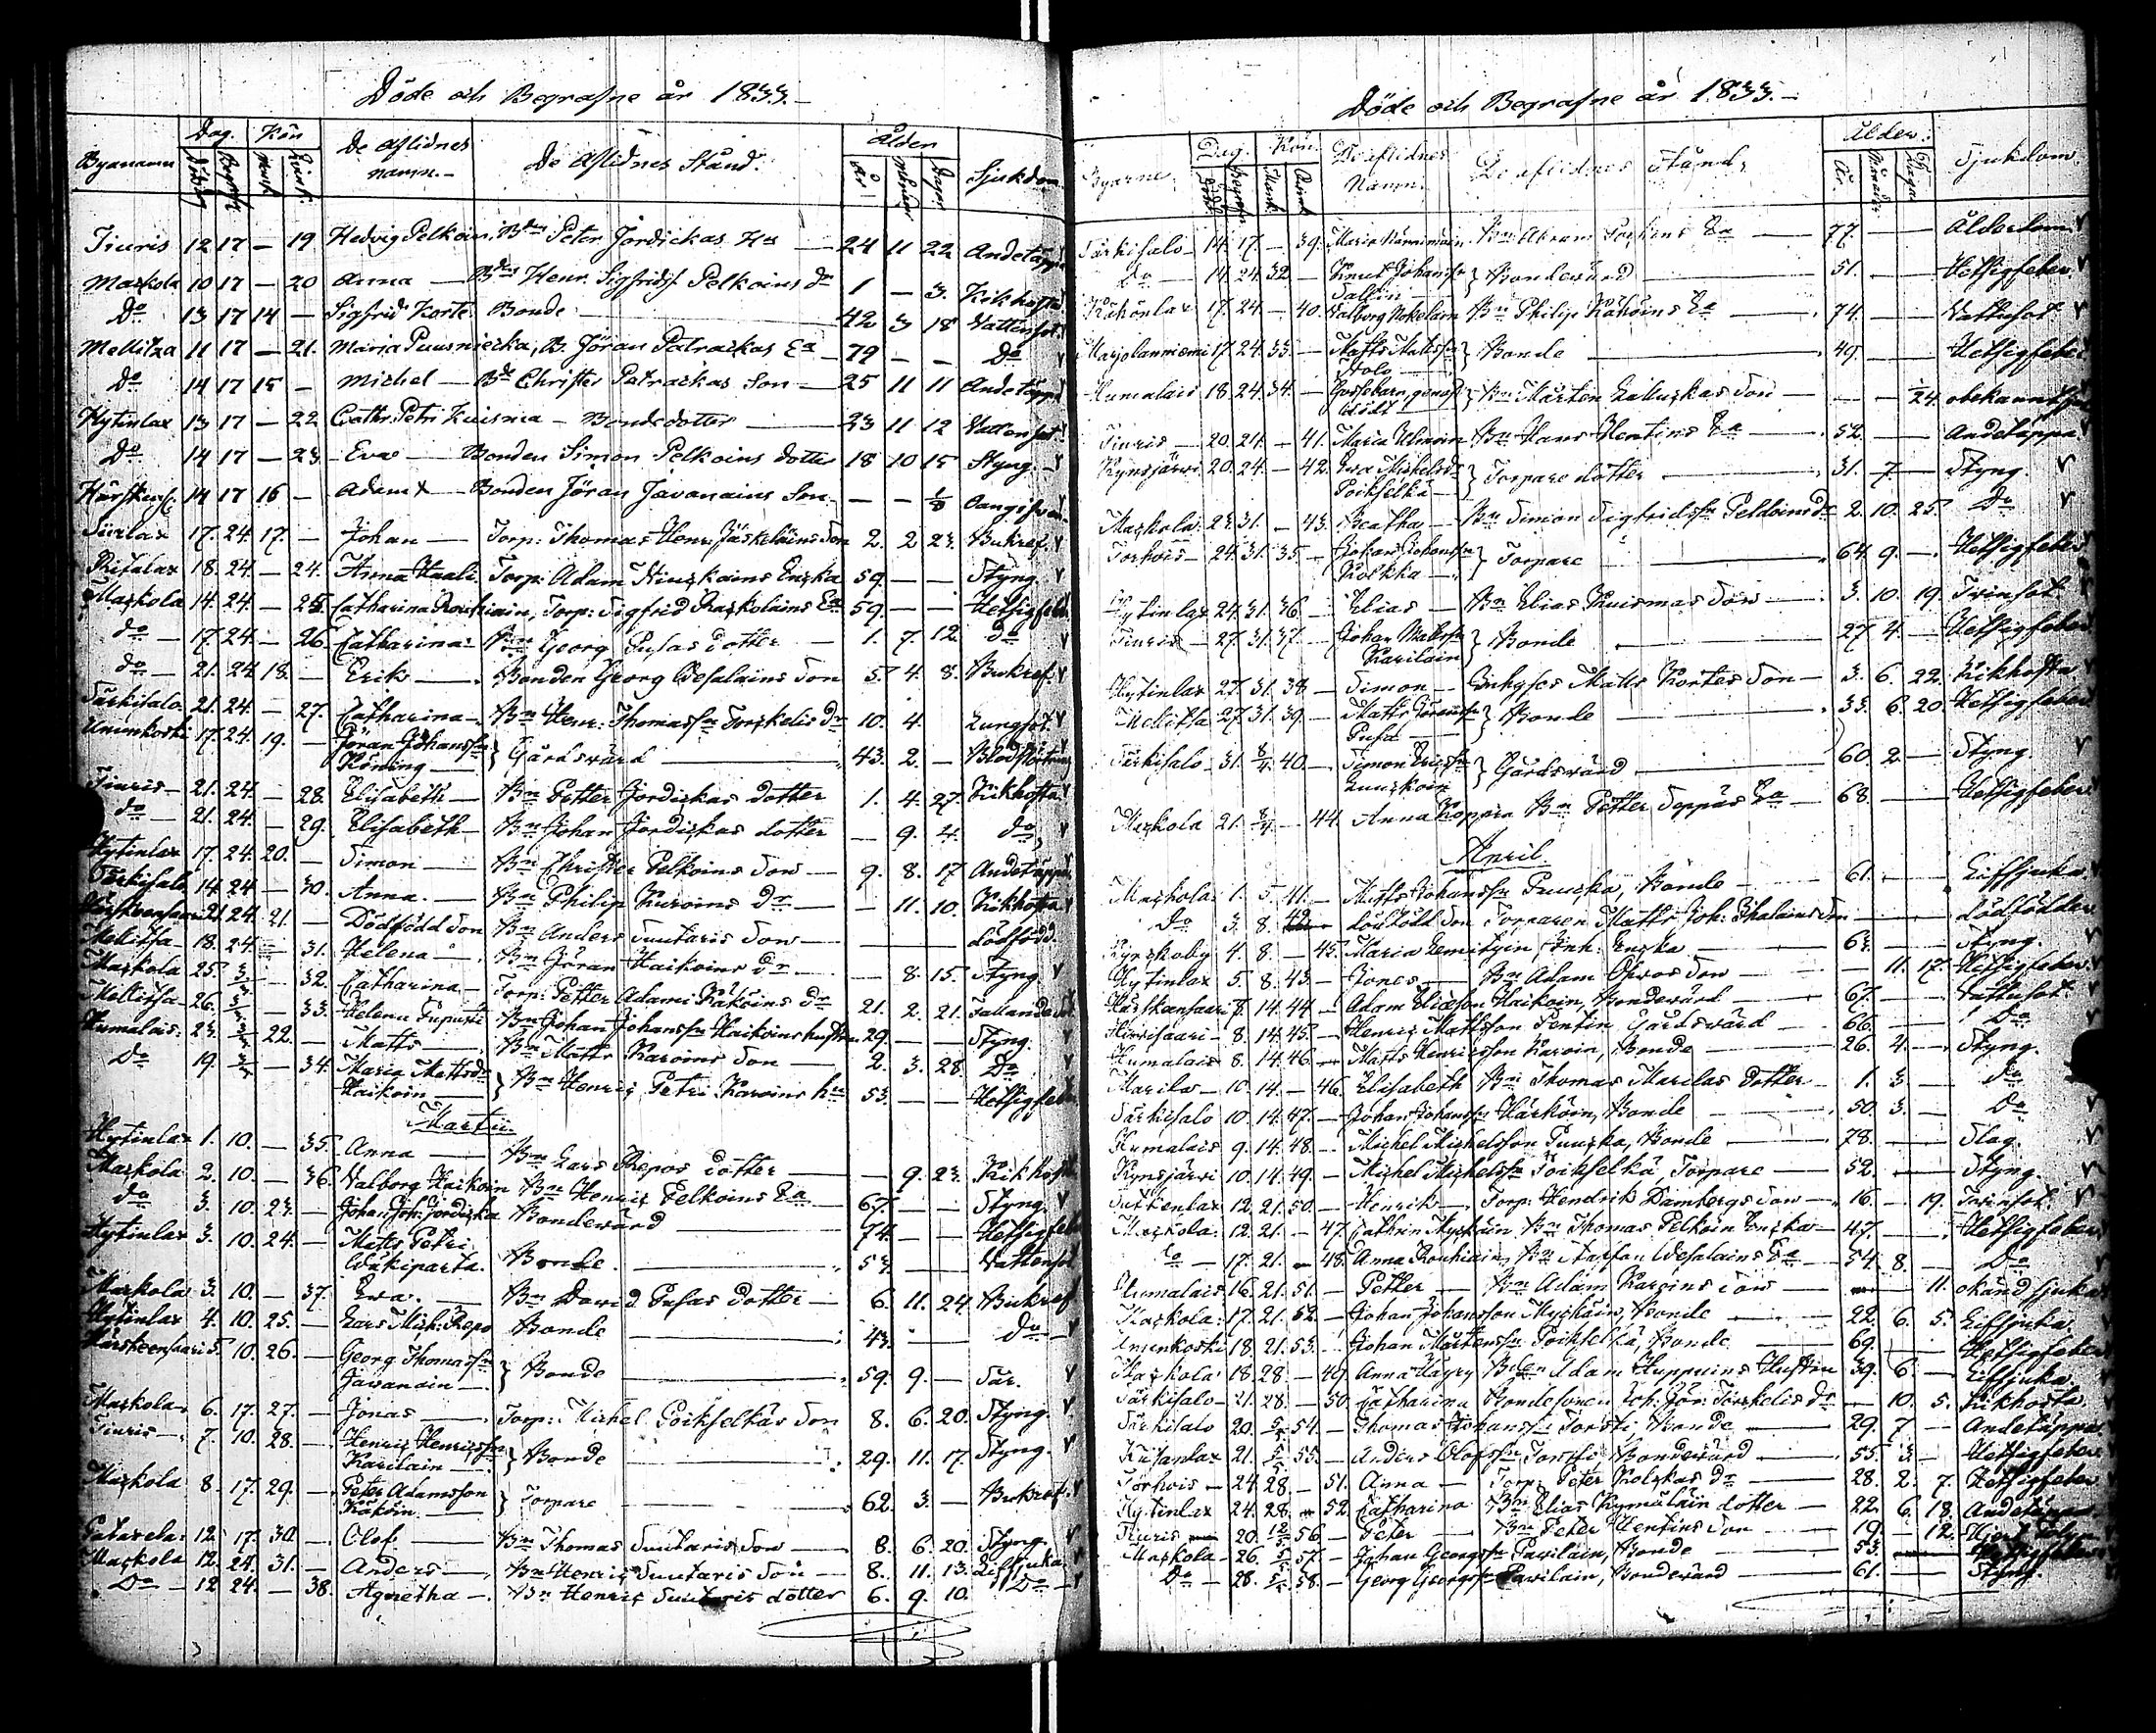 Döde och Begrafne år 1833.
Byanamn Dag. Kön De Aflidnes namn. De Aflidnes Stånd. Ålder Sjukdom
Död Begraf. Mank. Qvink. År Månader Dagar
Tiuris 12 17 — 19 Hedvig Pelkoin, Bdn Peter Jordickas Hu — 24 11 22 Andetäppa
Maskola 10 17 — 20 Anna — Bdns Henr. Sigfridss Pelkoins dr 1 — 3. Kikhosta
Do 13 17 14 — Sigfrid Korte Bonde 42 3 18 Vattusot
Mellitza 11 17 — 21. Maria Puusniecka, B. Jöran Patrackas Ea — 79 — — Do
Do 14 17 15 — Michel — Bde Christer Patrackas Son — 25 11 11 Andetäppa
Hytinlax 13 17 — 22 Cathr. Petri Kuisma — Bondedotter 23 11 12 Vattensot
Do 14 17 — 23 Eva — Bonden Simon Pelkoins dotter 18 10 15 Styng.
14 17 16 — Adam — Bonden Jöran Javanains Son — — 1/8
Siirlax 17. 24 17. — Johan — Torp. Thomas Henr. Jäskeläins Son 2. 2 23. Bukref.
Ritalax 18. 24. — 24. Anna Haali Torp. Adam Hinzkains Enka 59. — — Styng.
Maskola 14. 24. — 25 Catharina Roukiain, Torp. Sigfrid Raskolains Ea 59. — — Hetsigfeber
do — 17. 24 — 26. Catharina Bn Georg Pusas dotter — 1. 7. 12. do
do — 21. 24 18. — Erik — Bonden Georg Vesalains Son 5. 4. 8. Bukref
Särkisalo 21. 24. — 27. Catharina — Bn Henr. Thomassn Torskelis dr 10. 4. Lungsot.
Unnunkoski 17. 24. 19. — Jöran Johanssn Köning — } Gårdsvärd 43. 2. — Blodstörtning
Tiuris — 21. 24. — 28. Elisabeth — Bn Petter Jordickas dotter 1. 4. 27. Kikhosta
do — 21. 24. — 29. Elisabeth — Bn Johan Jordickas dotter — 9. 4. do
Hytinlax 17. 24. 20. — Simon — Bn Christer Pelkoins Son — 9. 8. 17 Andetäppa
Särkisalo 14. 24 — 30. Anna. — Bn Philip Kuroins dr — 11. 10. Kikhosta
21 24. 21. — Dödfödd Son Bn Anders Suutaris Son — dödfödd.
Mellitsa — 18. 24. — 31. Helena — Bn Jöran Haikoins dr — 8. 15. Styng
Maskola 25. 3/3 — 32. Catharina — Torp. Petter Adami Käköins dr 21. 2. 21. Fallandesot
Mellitsa — 26. 3/3 — 33. Helena Bn Johan Johanssn Haikoins hustru 29. — — Styng.
Humalais: 23. 3/3 22. — Matts — Bn Matts Karoins Son — 2. 3. 28. Do
Do 19. 3/3 — 34. Maria Mattsdr Haikoin — } Bn Henric Petri Karoins hu 53. — — Hetsigfeber
Martii.
Hytinlax 1. 10. — 35. Anna — Bn Lars Repos dotter — 9. 23. Kikhosta
Maskola 2. 10. — 36. Valborg Haikoin Bn Henric Pelkoins Ea — 67. — — Styng.
do 3. 10. 23. — Johan Joh. Jordicka Bondevärd 74. — — Hetsigfeber
Hytinlax 3. 10. 24. — Matts Petri Wäkiparta. Bonde. 53. — Vattensot
Maskola 3. 10. — 37. Eva. — Bn David Pusas dotter — 6. 11. 24. Bukref
Hytinlax 4. 10. 25. — Lars Mich: Repo Bonde 43. — Do
5. 10. 26. — Georg Thomassn Javanain — } Bonde 59. 9. — Sår.
Maskola 6. 17. 27. — Jonas — Torp. Michel Poikselkäs Son 8. 6. 20. Styng.
Tiuris — 7. 10. 28. — Henric Henricssn Karilain — } Bonde 29. 11. 17. Styng.
Maskola 8. 17. 29. — Peter Adamsson Käköin — } Torpare 62. 3. — Bukref.
Patarela 12 17 30. — Olof — Bn Thomas Suutaris Son — 8. 6. 20. Styng
Maskola 12. 24. 31. — Anders — Bn Henric Suutaris Son — 8. 11. 13. Liffsjuka
Do — 12 24. — 38. Agnetha — Bn Henric Suutaris dotter 6. 9. 10. Do
Döde och Begrafne år 1833.
Byarne Dag. Kön. De Aflidnes Namn. De Aflidnes Stånd. Ålder. Sjukdom
Död Begrafn Mank. Qvink År. Månader Dagar
Särkisalo 14. 17. — 39. Maria Bn Abram Ea — 77. — — Ålderdom
do — 14 24. 32. — Knut Johanssn Tallin — } Bondevärd 51. — — Hetsigfeber.
Käkönlax 17. 24. — 40. Valborg Nokelain Bn Philip Käköins Ea 74. — Vattusot
Marjolanniemi 17. 24. 33. — Matts Mattssn } Bonde 49. — Hetsigfeber
Humalais 18 24. 34. — Gossebarn, } Bn Mårten Galluskas Son — — 1/24.
Tiuris — 20. 24. — 41. Maria Bn Hans Hentins Ea 52. — Andetäppa
Kynsjärvi 20. 24. — 42. Eva Mickelsdr Poikselkä — } Torpare dotter 31. 7 — Styng
Maskola 23. 31. — 43. Beatha — Bn Simon Sigfridssn Peldoins dr 2. 10. 25. Do
Torhois — 24. 31. 35. — Johan Johanssn Kolkka — } Torpare 64. 9. — Hetsigfeber
Hytinlax 24. 31. 36 — Elias — Bn Elias Kuismas Son — 3. 10. 19. Tvinsot
Tiuris 27. 31. 37. — Johan Mattssn Karilain } Bonde 27 4. — Hetsigfeber
Hytinlax 27. 31. 38. — Simon — Inhyses Matts Kortes Son — 3. 6. 22. Kikhosta.
Mellitsa 27. 31. 39. — Matts Göranssn Pusa — } Bonde 33. 6. 20 Hetsigfeber
Särkisalo 31. 8/4 40. — Simon Ericssn } Gårdsvärd 60 2. — Styng
Maskola 21. 8/4 — 44. Anna Koppra Bn Petter Seppäs Ea — 68. — Hetsigfeber
April.
Maskola 1. 5. 41. — Matts Johanssn Puuska, Bonde — 61. — Liffsjuka
Do 3. 8. 42. — dödfödd Son Torparen Matts Joh: Ihalains Son dödfödder
4. 8. — 45. Maria Inh: Enka 63. — Styng.
Hytinlax 5. 8. 43. — Jonas — Bn Adam Orvos Son — 11. 17. Hetsigfeber.
8. 14. 44. — Adam Eliasson Haikoin, Bondevärd — 67. — Vattusot
8. 14. 45. — Henric Mattsson Pentin Gårdsvärd — 66. — Do
Humalais 8. 14. 46. — Matts Henricsson Karoin, Bonde — 26. 4. — Styng.
Marila — 10. 14. — 46. Elisabeth Bn Thomas Marilas dotter — 1. 3. — Do
Särkisalo 10. 14. 47. — Johan Johanssn Härköin, Bonde 50. 3. — Do
Humalais 9. 14. 48. — Michel Michelsson Puuska, Bonde 78. — Slag.
Kynsjärvi 10. 14. 49. — Michel Michelssn Poikselkä, Torpare — 52. — Styng
12. 21. 50. — Henrik — Torp. Hendrik Dambergs Son — 16. — 19. Tvinsot
Maskola 12. 21. — 47. Cathrin Myckäin Bn Thomas Pelkoin Enka — 47. — Hetsigfeber
do — 17. 21. — 48. Anna Roukiain, Bn Staffan Vesalains Ea — 54. 8. — Do
Humalais 16. 21. 51. — Petter — Bn Adam Karoins Son — 11. okänd sjukd
Maskola 17. 21. 52. — Johan Johansson Myckäin, Bonde 22. 6. 5. Liffsjuka
Unnunkoski 18. 21. 53. — Johan Mårtenssn Poikselkä, Bonde 69. — Hetsigfeber
Maskola 18. 28. — 49. Anna Häyry Bden Adam Huppuins Hustru 39. 6. — Liffsjuka.
Särkisalo — 21. 28. — 50. Catharina Bondesonen Joh: Jör: Torskelis dr — 10. 5. Kikhosta
Särkisalo 20. 5/5 54. — Thomas Johanssn Torsti, Bonde 29. 7 — Andetäppa
21. 5/5 55. — Anders Olofssn Bondevärd 55. 3. — Hetsigfeber
Torhois — 24. 28. — 51. Anna — Torp. Peter Kolkas dr 28. 2. 7. Hetsigfeber
Hytinlax 24. 28. — 52. Catharina Bn Elias Kymäläin dotter — 22. 6. 18. Andetäppa
Tiuris 20. 12/5 56 — Peter — Bn Peter Hentins Son 19. — 12.
Maskola — 26. 5/5 57. — Johan Georgssn Pavilain, Bonde — 53.
Do — 28. 5/5 58. — Georg Georgssn Pavilain, Bondevärd — 61. — Styng.